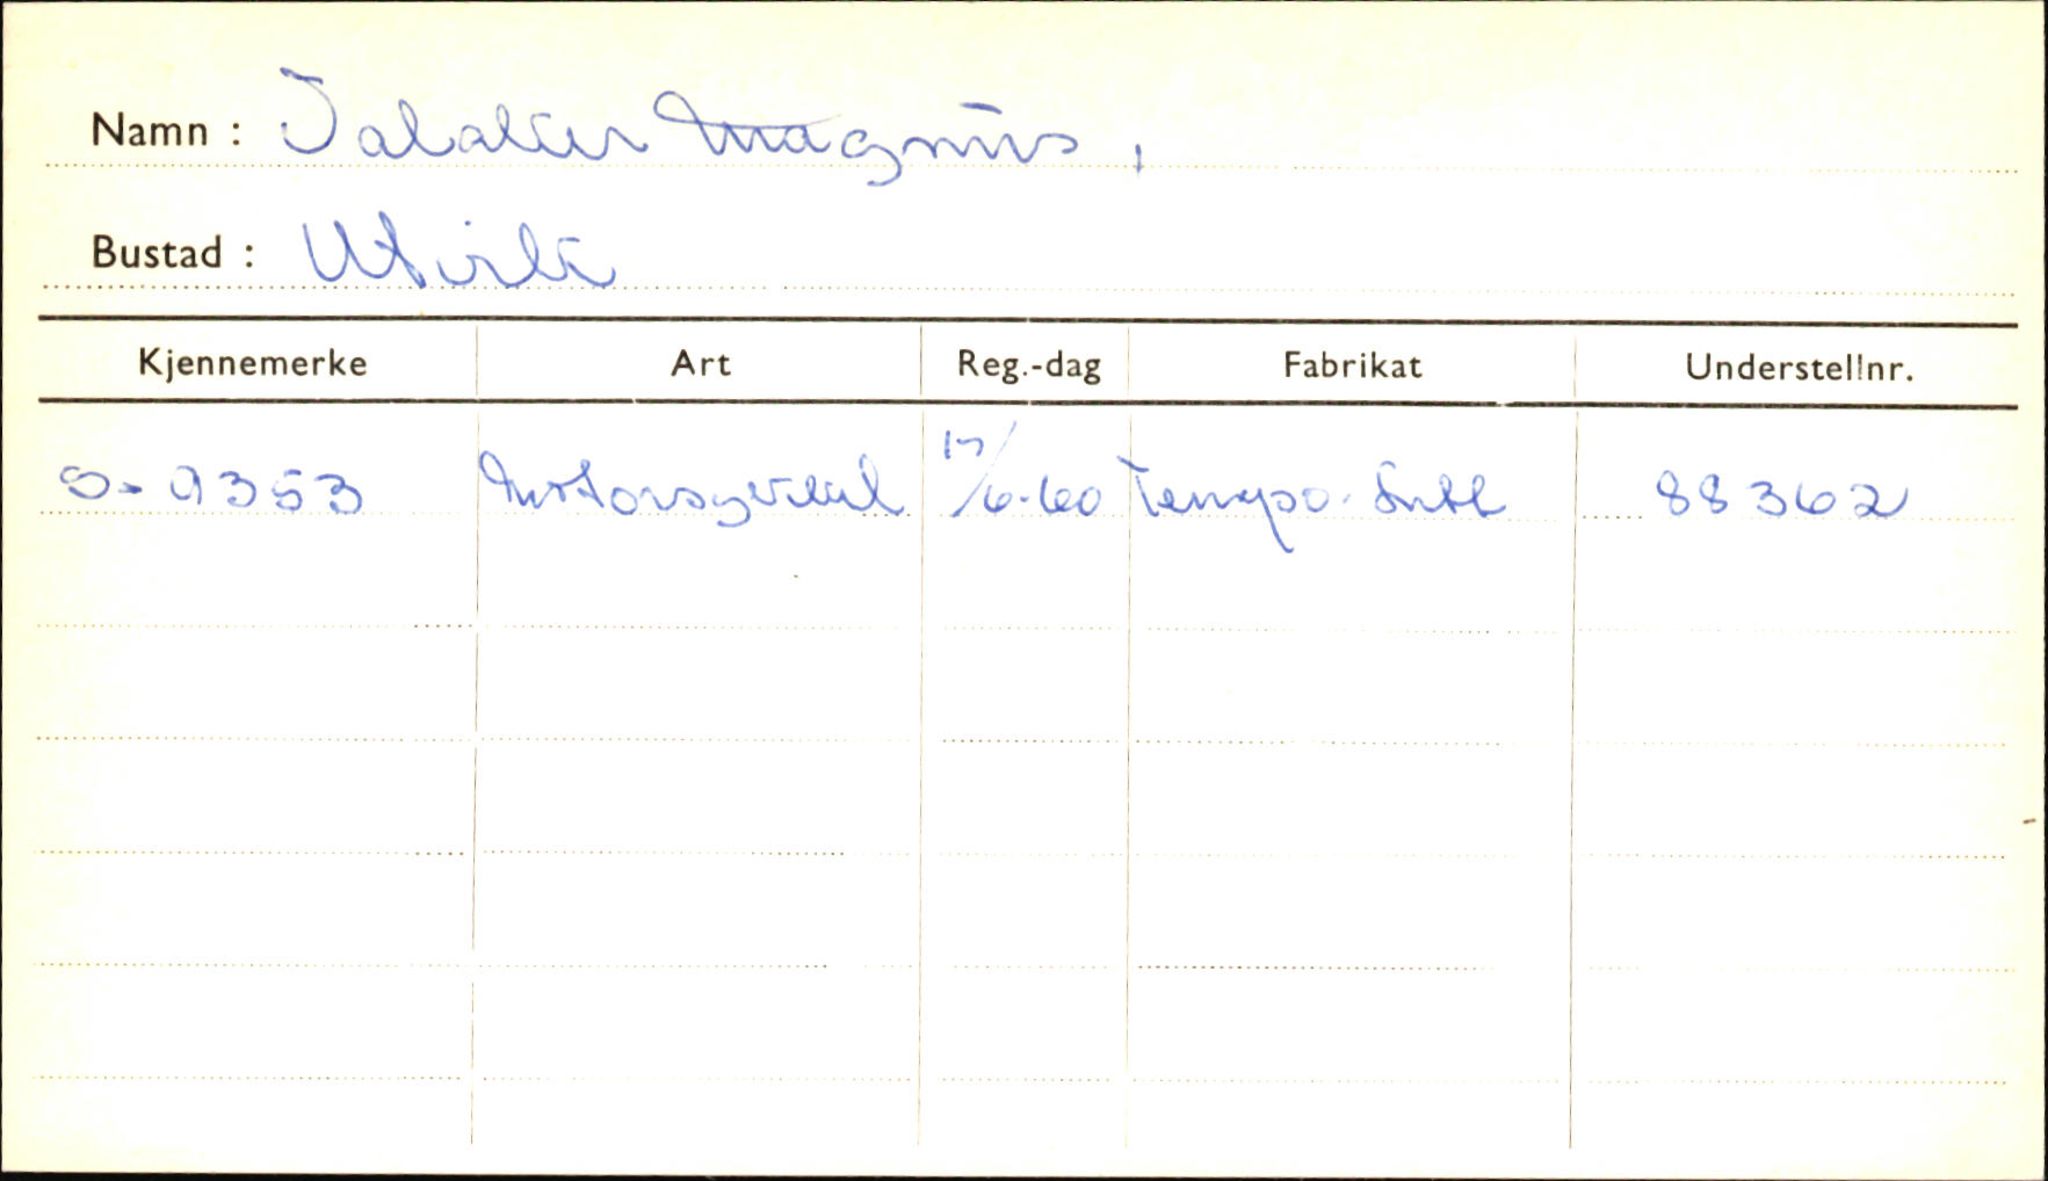 Namn : Talaker Magnus,
Bustad : Utvik
Kjennemerke Art Reg.-dag Fabrikat Understellnr.
S-9353 Motorsykkel 17/6-60 Tempo 88362